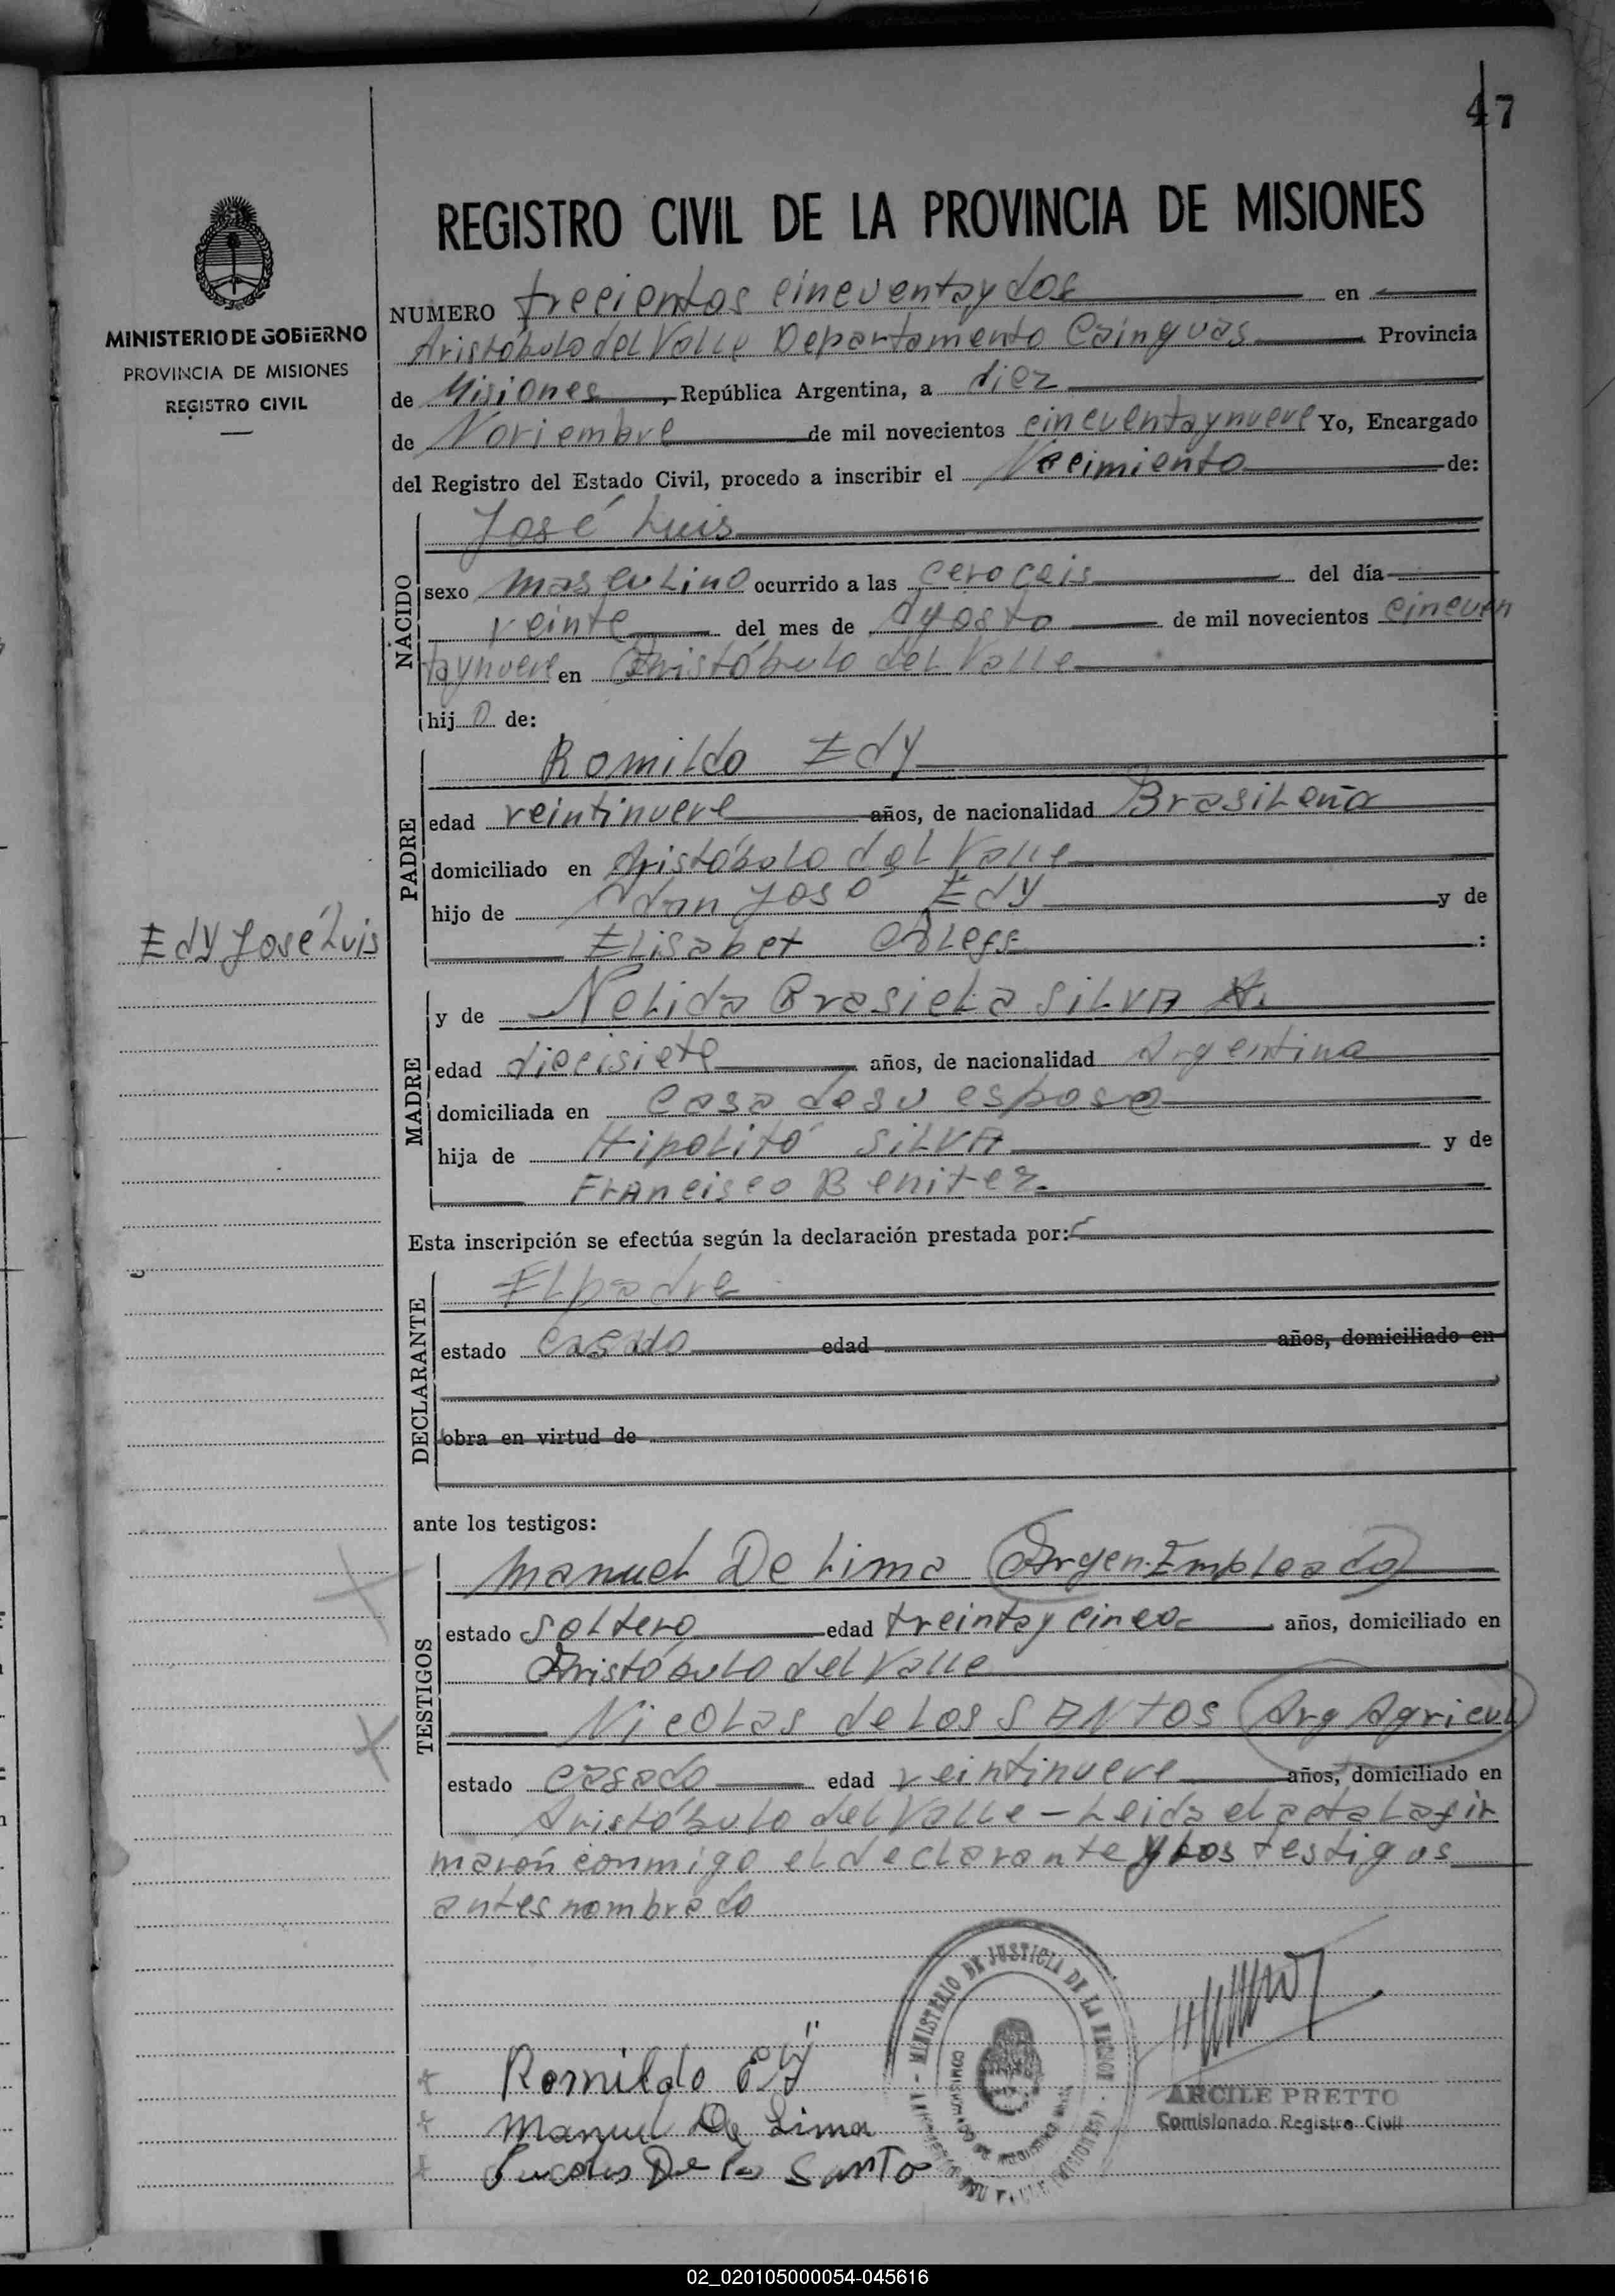 47
REGISTRO CIVIL DE LA PROVINCIA DE MISIONES
MINISTERIO DE GOBIERNO
PROVINCIA DE MISIONES
REGISTRO CIVIL
NUMERO trecientos cincuentaydos en
Aristóbulo del Valle Departamento Cainguas Provincia
de Misiones, República Argentina, a diez
de Noviembre de mil novecientos cincuentaynueve Yo, Encargado
del Registro del Estado Civil, procedo a inscribir el Necimiento de:
NACIDO
José Luis
sexo masculino ocurrido a las cero ceis del día
veinte del mes de Agosto de mil novecientos cincuen
taynueve en Aristóbulo del Valle
hijo de:
PADRE
Romildo Edy
edad veintinueve años, de nacionalidad Brasileña
domiciliado en Aristóbulo del Valle
hijo de Adan José Edy y de
Elisabet :
Edy José Luis
MADRE
y de Nelida Brasiela SILVA
edad diecisiete años, de nacionalidad Argentina
domiciliada en casa de su esposo
hija de Hipolito SILVA y de
Francisco Benitez
Esta inscripción se efectúa según la declaración prestada por:
DECLARANTE
El padre
estado casado edad años, domiciliado en
obra en virtud de
ante los testigos:
TESTIGOS
Manuel De Lima (Argen. Empleado)
estado soltero edad treintay cinco años, domiciliado en
Aristóbulo del Valle
Nicolas de Los SANTOS (Arg Agricul)
estado casado edad veintinueve años, domiciliado en
Aristóbulo del Valle - Leida el acta la fir
maron conmigo el declarante y los testigos
antes nombrado
MINISTERIO DE JUSTICIA DE LA NACION
Romildo Edÿ
Manuel De Lima
De los Santo
ARCILE PRETTO
Comisionado Registro Civil
02_020105000054-045616